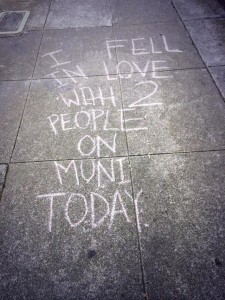 I FELL
IN LOVE
WITH 2
PEOPLE
ON
MUNI
TODAY.